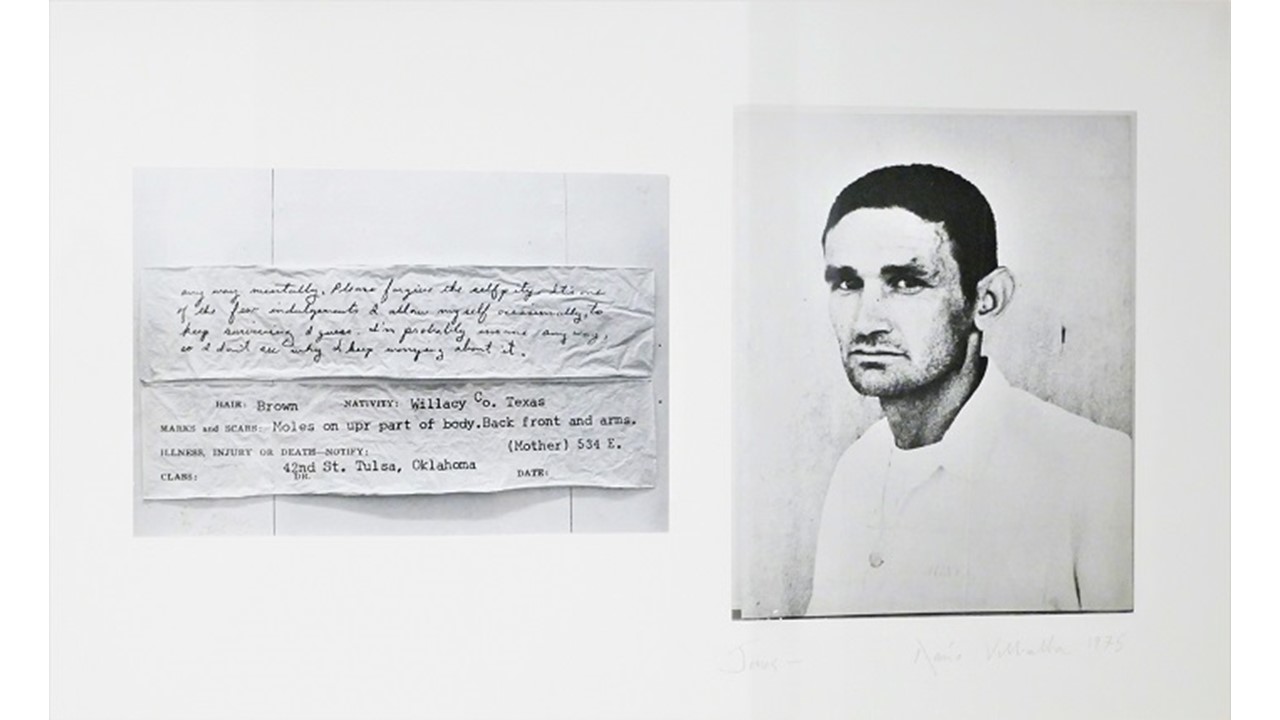 any way mentally. Please forgive the self pity - It's one
of the few indulgements I allow myself occasionally, to
keep surviving I guess. I'm probably insane any way,
so I don't see why I keep worrying about it.
HAIR: Brown NATIVITY: Willacy Co. Texas
MARKS and SCARS: Moles on upr part of body. Back front and arms.
ILLNESS, INJURY OR DEATH—NOTIFY: (Mother) 534 E.
42nd St. Tulsa, Oklahoma
CLASS: DR. DATE:
Villalba 1975